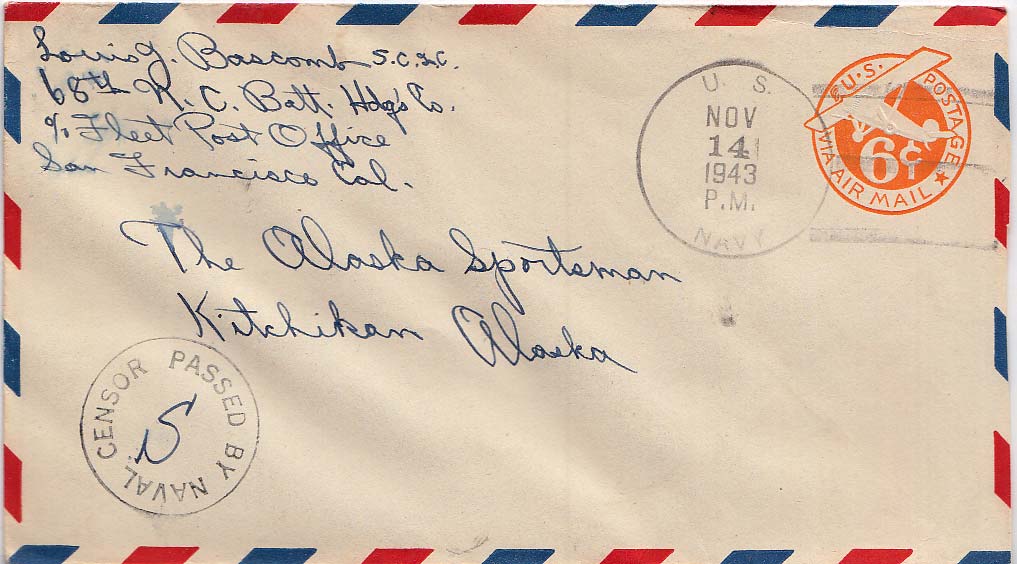 Louis J. Bascomb S.C.2.C.
68th N. C. Batt. Hdqs Co.
c/o Fleet Post Office
San Francisco Cal.
The Alaska Sportsman
Kitchikan Alaska
U. S.
NOV
14
1943
P.M.
NAVY
U.S. POSTAGE
6¢
VIA AIR MAIL
PASSED BY NAVAL CENSOR
S